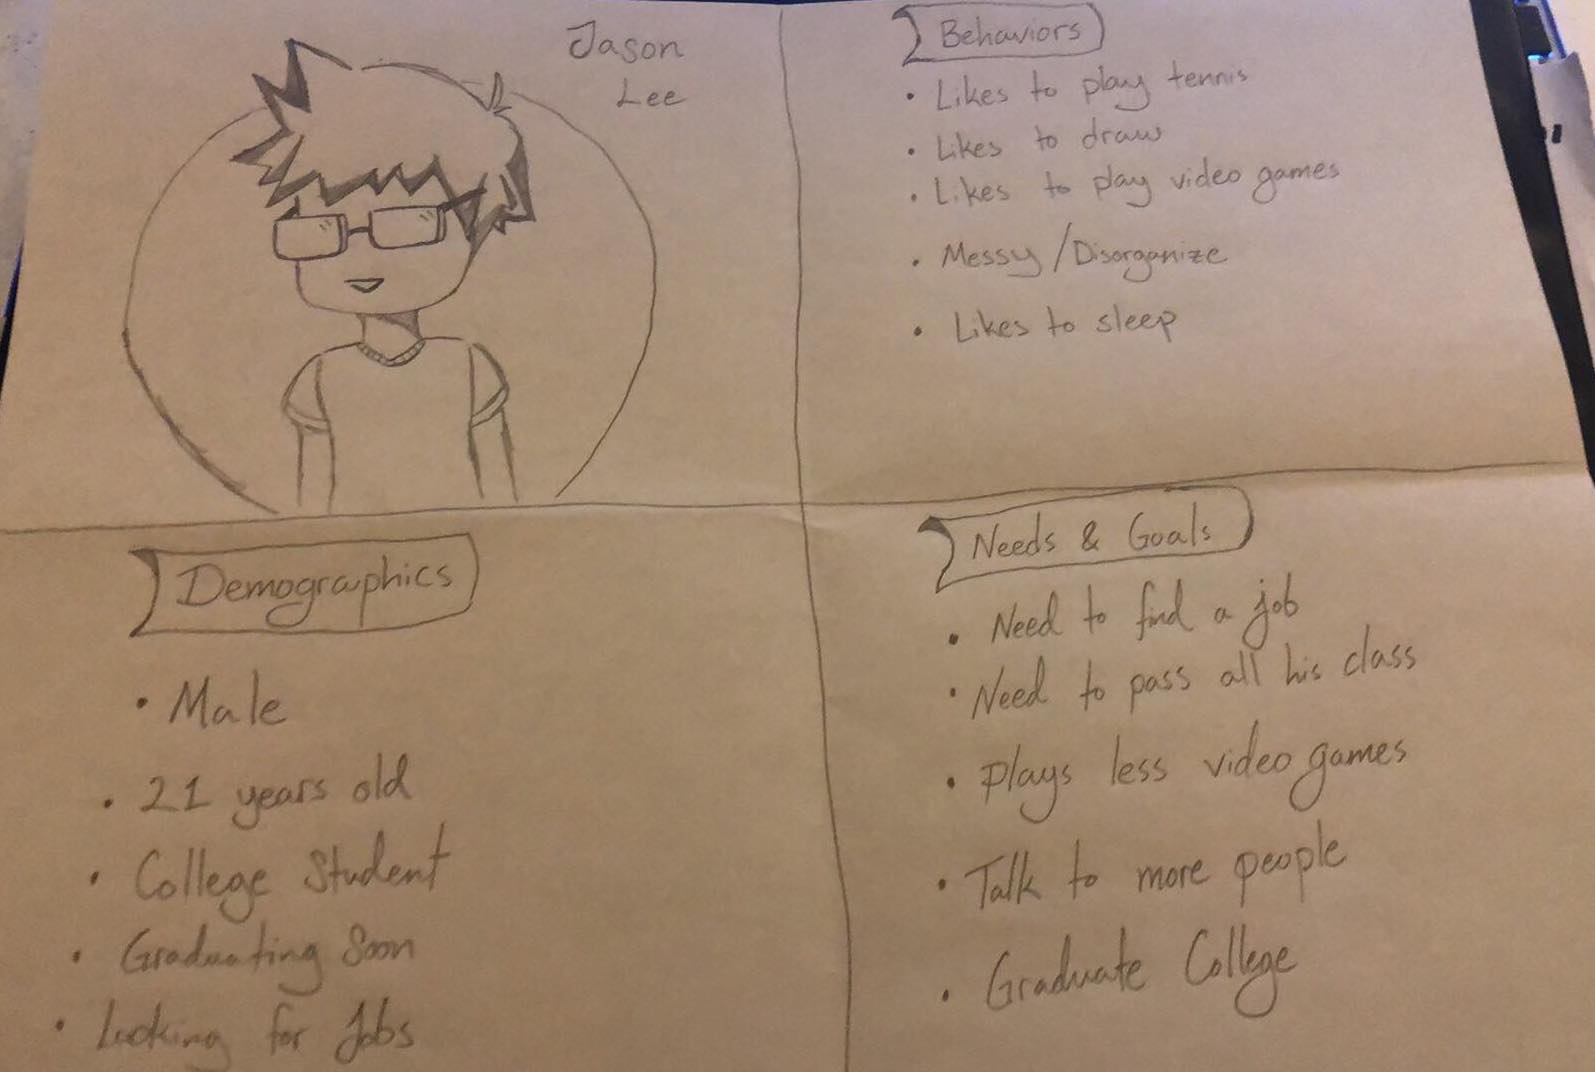 Jason
Lee
Behaviors
• Likes to play tennis
• Likes to draw
• Likes to play video games
• Messy / Disorganize
• Likes to sleep
Demographics
• Male
• 21 years old
• College Student
• Graduating Soon
• Looking for Jobs
Needs & Goals
• Need to find a job
• Need to pass all his class
• Plays less video games
• Talk to more people
• Graduate College